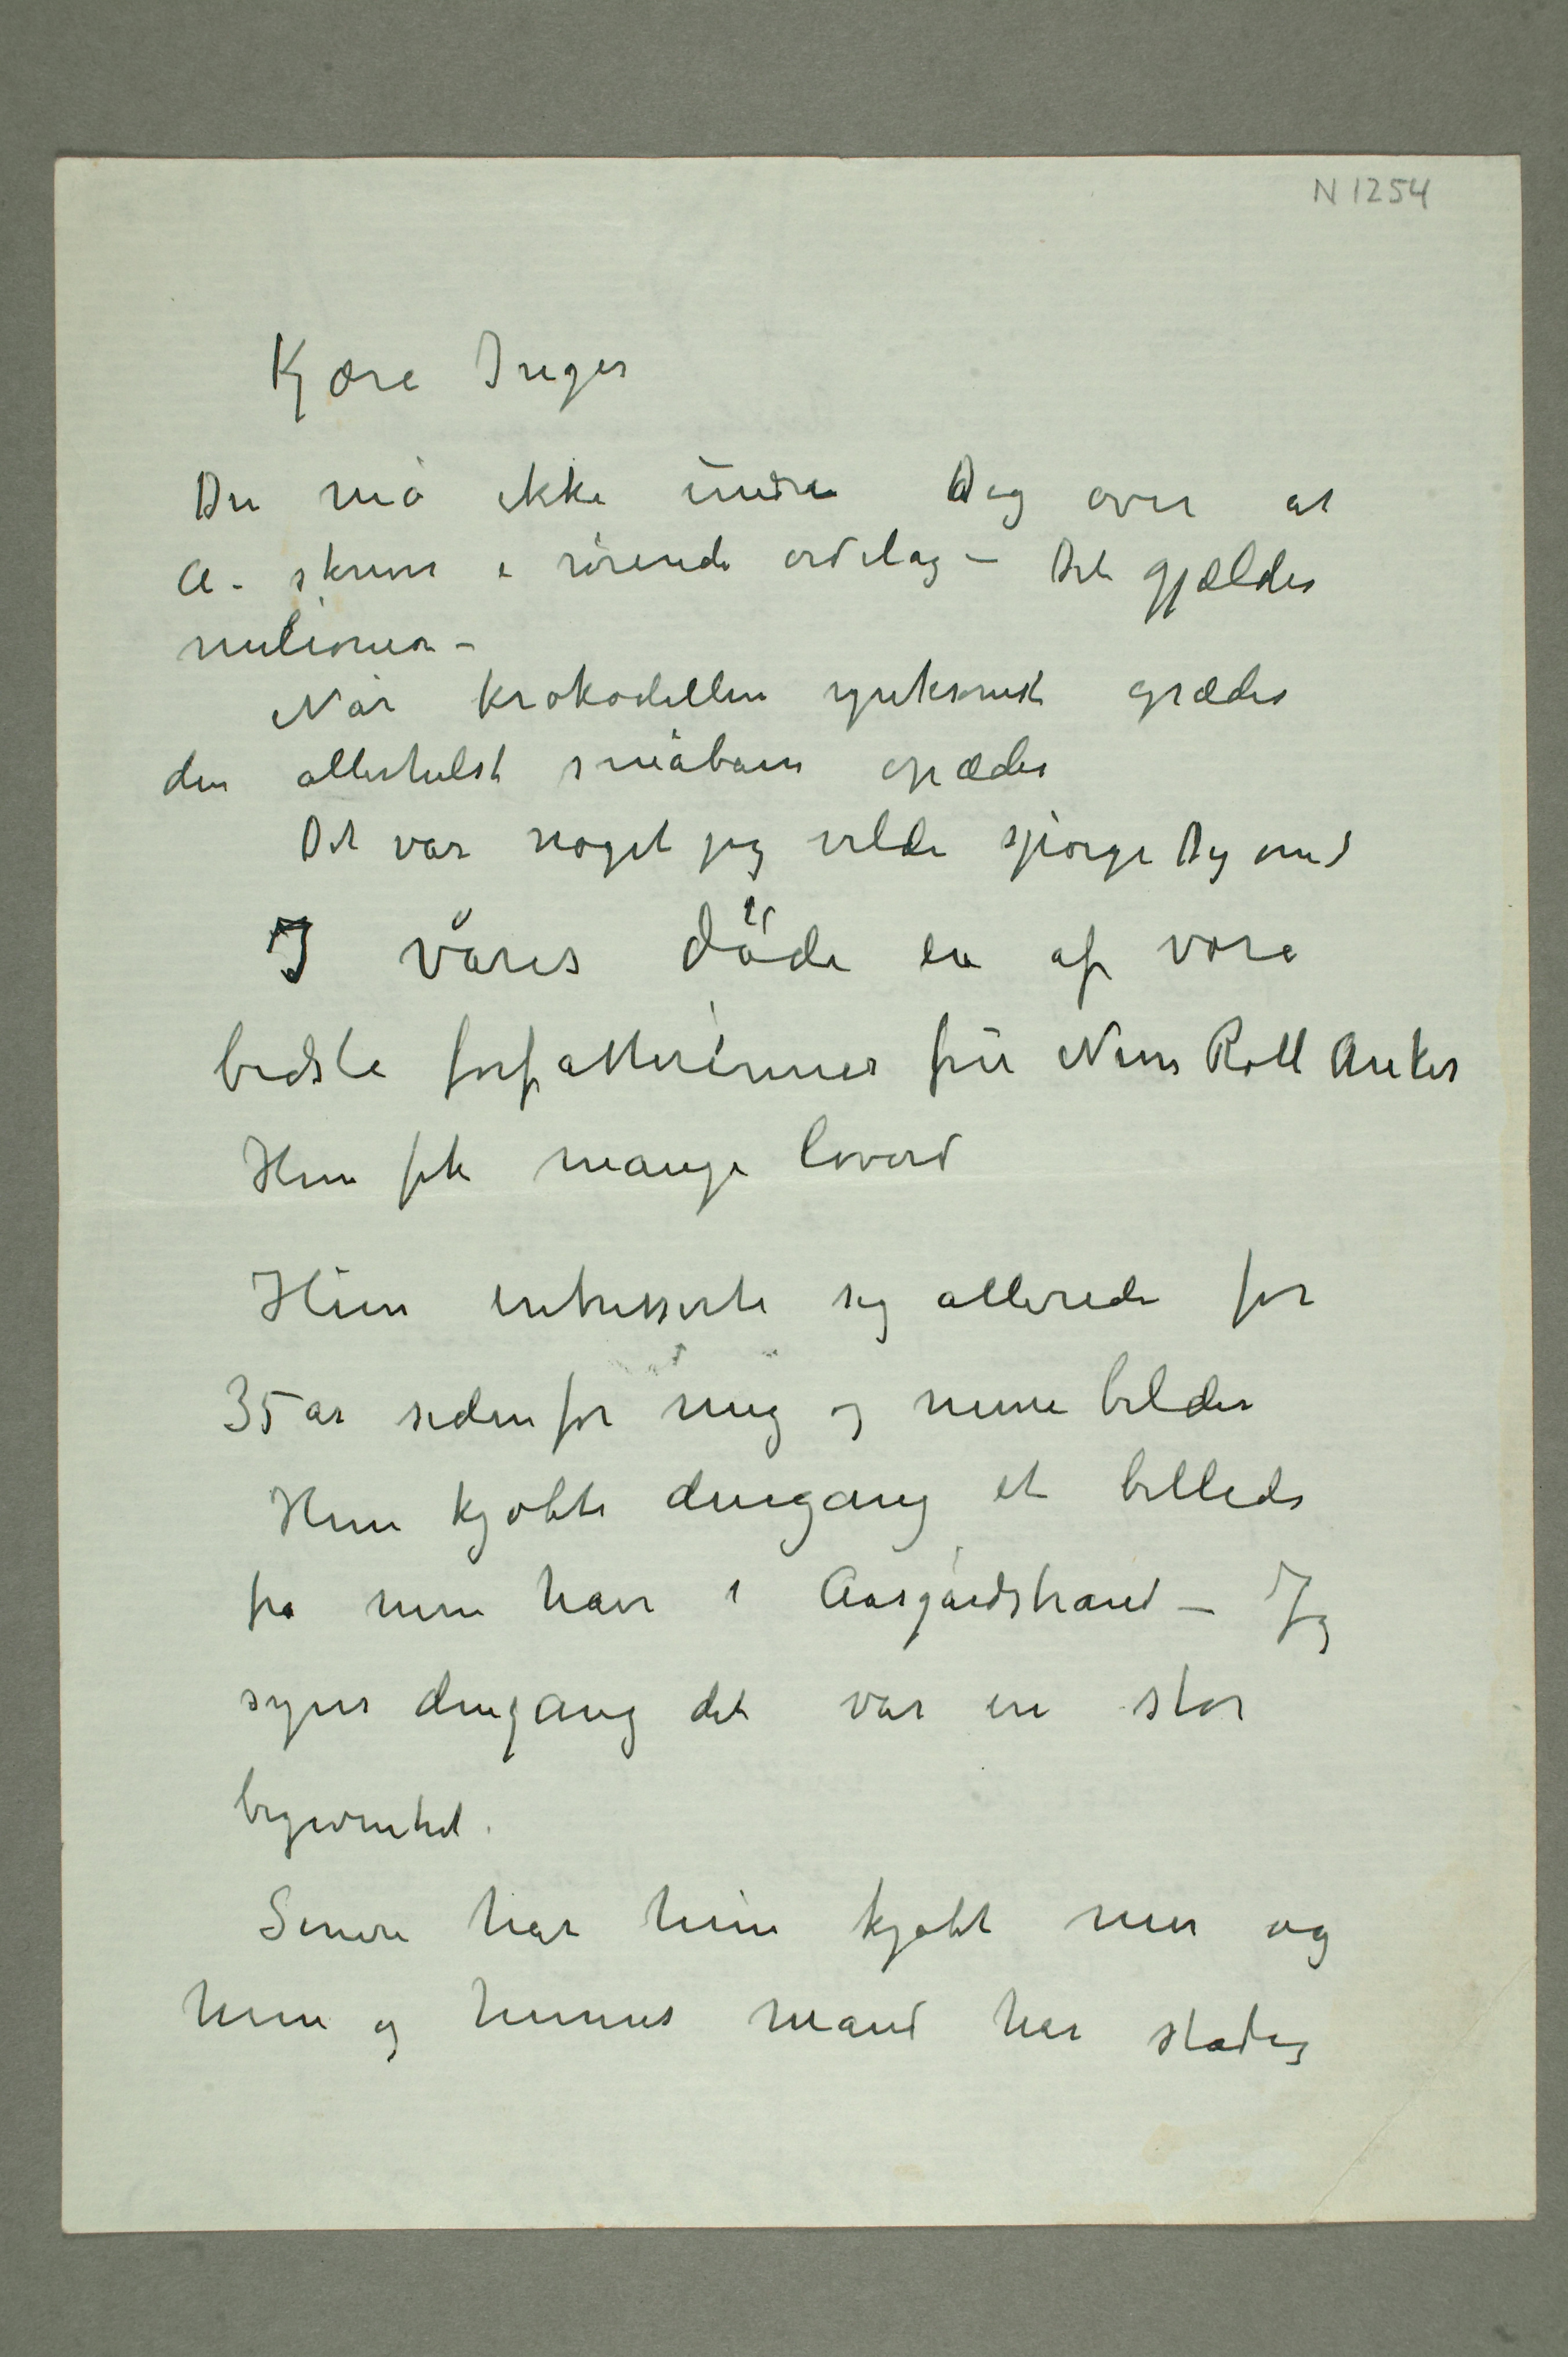 N 1254
Kjære Inger
Du må ikke undre Dig over at
A. skriver i rørende ordelag – Det gjælder
milioner –
Når krokodillen ynksomst græder
den allerhelst småbarn opæder
Det var noget jeg vilde spørge Dig om
I våres døde en af vore
bedste forfatterinner fru Nini Roll Anker
Hun fik mange lovord
Hun intresserte sig allerede for
35 år siden for mig og mine bilder
Hun kjøbte dengang et billede
fra min have i Aasgårdstrand – Jeg
synes dengang det var en stor
begivenhet.
Senere har hun kjøbt mer og
hun og hennes mand har stadig